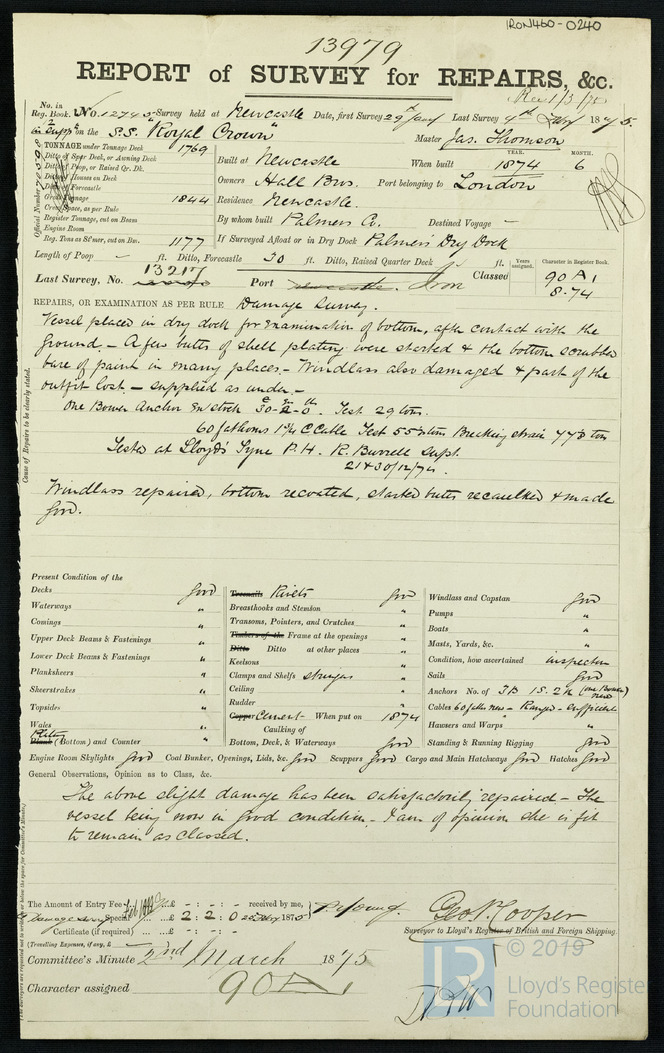 IRON460-0240
13979
REPORT of SURVEY for REPAIRS, &c.
Rec 1/3/75
No. in Reg. Book. No. 12745 Survey held at Newcastle Date, first Survey 29th Jany Last Survey 4th Feby 1875.
in Supp on the S.S. "Royal Crown" Master Jas. Thomson
TONNAGE under Tonnage Deck 1769
Ditto of Spar Deck, or Awning Deck
Ditto of Poop, or Raised Qr. Dk.
Ditto of Houses on Deck
Ditto of Forecastle
Gross Tonnage 1844
Crew Space, as per Rule
Register Tonnage, cut on Beam
Engine Room
Reg. Tons as St'mer, cut on Bm. 1177
Official Number 70598
Built at Newcastle When built YEAR. 1874 MONTH. 6
Owners Hall Bros. Port belonging to London
Residence Newcastle.
By whom built Palmers Co. Destined Voyage –
If Surveyed Afloat or in Dry Dock Palmers Dry Dock
Length of Poop – ft. Ditto, Forecastle 30 ft. Ditto, Raised Quarter Deck – ft. Years assigned. Character in Register Book.
Last Survey, No. 13217 Port Newcastle. Iron Classed 90 A1
8.74
REPAIRS, OR EXAMINATION AS PER RULE Damage Survey.
Cause of Repairs to be clearly stated.
Vessel placed in dry dock for examination of bottom, after contact with the
ground. – A few butts of shell plating were started & the bottom scrubbed
bare of paint in many places. – Windlass also damaged & part of the
outfit lost. – supplied as under. –
One Bower Anchor Ex stock 30-2-0. Test 29 tons.
60 fathoms C Cable Test 55 tons Breaking strain 77 tons
Tested at Lloyd's Tyne P.H. R. Burrell Supt.
21 & 30/12/74.
Windlass repaired, bottom recoated, started butts recaulked & made
good.
Present Condition of the
Decks good
Waterways "
Comings "
Upper Deck Beams & Fastenings "
Lower Deck Beams & Fastenings "
Planksheers "
Sheerstrakes "
Topsides "
Wales "
Plating (Bottom) and Counter "
Treenails Rivets good
Breasthooks and Stemson "
Transoms, Pointers, and Crutches "
Timbers of the Frame at the openings "
Ditto Ditto at other places "
Keelsons "
Clamps and Shelfs stringers "
Ceiling "
Rudder "
Copper Cement When put on 1874
Caulking of
Bottom, Deck, & Waterways good
Windlass and Capstan good
Pumps "
Boats "
Masts, Yards, &c. "
Condition, how ascertained inspection
Sails good
Anchors No. of 3B 1S. 2K (one Bower new)
Cables 60 faths new – Ranged – sufficient
Hawsers and Warps "
Standing & Running Rigging good
Engine Room Skylights good Coal Bunker, Openings, Lids, &c. good Scuppers good Cargo and Main Hatchways good Hatches good
General Observations, Opinion as to Class, &c.
The above slight damage has been satisfactorily repaired – The
vessel being now in good condition – I am of opinion she is fit
to remain as classed.
The Amount of Entry Fee ... £ - : - : - received by me,
Damage Survey Special ... £ 2 : 2 : 0 1875
Certificate (if required) ... £ - : - : -
(Travelling Expenses, if any, £ –
P. Young.
Geo. P. Cooper
Surveyor to Lloyd's Register of British and Foreign Shipping.
Committee's Minute 2nd March 1875
Character assigned 90 A1
LR
© 2019
Lloyd's Register
Foundation